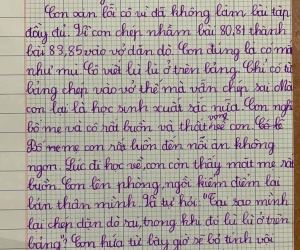 Con xin lỗi cô vì đã không làm bài tập
đầy đủ. Vì con chép nhầm bài 80,81 thành
bài 83,85 vào vở dặn dò. Con đúng là có mắt
như mù. Cô viết lù lù ở trên bảng. Chỉ có từ
bảng chép vào vở thế mà vẫn chép sai mà
con lại là học sinh xuất sắc nữa. Con nghĩ
bố mẹ và cô rất buồn và thất vọng con.
Bố mẹ con rất buồn đến nỗi ăn không
ngon. Lúc đi học về, con còn thấy mặt mẹ rất
buồn. Con lên phòng, ngồi kiểm điểm lại
bản thân mình. Và tự hỏi: "Tại sao mình
lại chép dặn dò sai, trong khi đó lù lù ở trên
bảng". Con hứa từ bây giờ sẽ bỏ tính vội